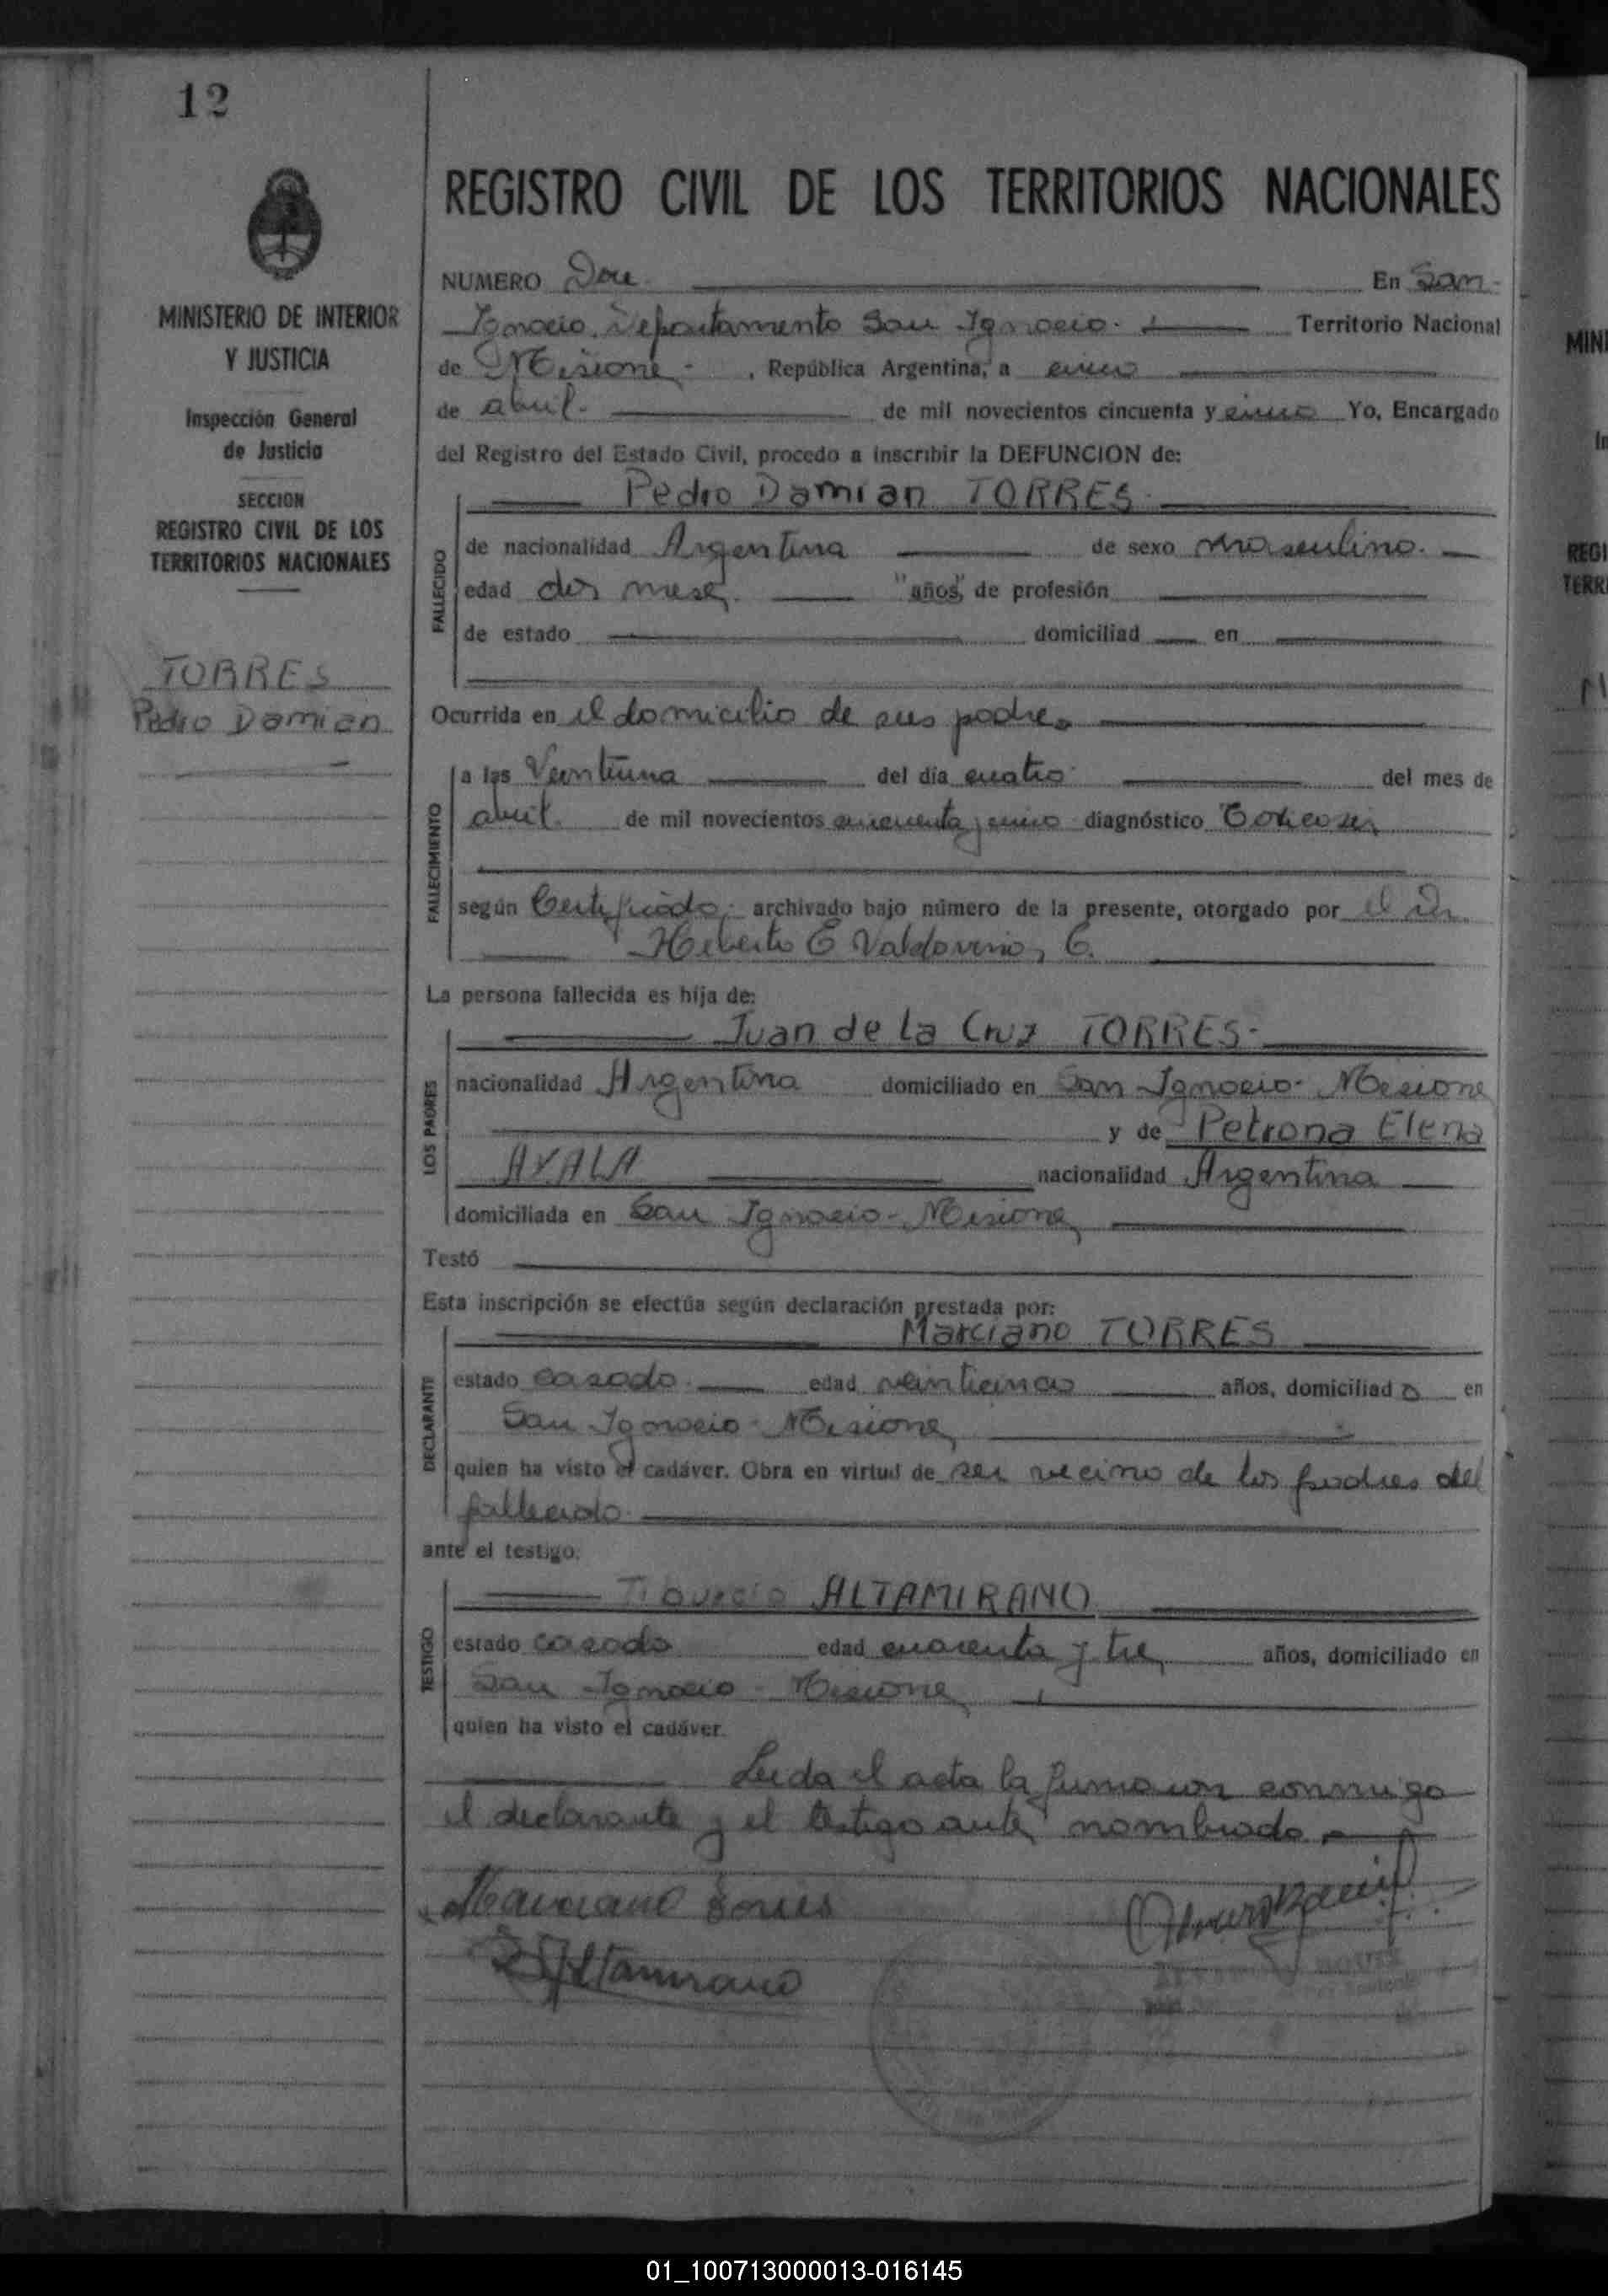 12
MINISTERIO DE INTERIOR
Y JUSTICIA
Inspección General
de Justicia
SECCION
REGISTRO CIVIL DE LOS
TERRITORIOS NACIONALES
TORRES
Pedro Damian
REGISTRO CIVIL DE LOS TERRITORIOS NACIONALES
NUMERO Doce En San
Ignacio, Departamento San Ignacio. Territorio Nacional
de Misiones, República Argentina, a cinco
de abril. de mil novecientos cincuenta y cinco Yo, Encargado
del Registro del Estado Civil, procedo a inscribir la DEFUNCION de:
Pedro Damian TORRES.
FALLECIDO
de nacionalidad Argentina de sexo masculino.
edad dos meses. "años", de profesión
de estado domiciliad en
Ocurrida en el domicilio de sus padres
FALLECIMIENTO
a las Veintiuna del día cuatro del mes de
abril. de mil novecientos cincuenta y cinco diagnóstico Toxicosis
según Certificado, archivado bajo número de la presente, otorgado por el Dr.
Heberto E Valdovinos C.
La persona fallecida es hija de:
Juan de la Cruz TORRES-
LOS PADRES
nacionalidad Argentina domiciliado en San Ignacio- Misiones
y de Petrona Elena
AYALA nacionalidad Argentina
domiciliada en San Ignacio- Misiones
Testó
Esta inscripción se efectúa según declaración prestada por:
Marciano TORRES
DECLARANTE
estado casado. edad veinticinco años, domiciliado en
San Ignacio- Misiones
quien ha visto el cadáver. Obra en virtud de ser vecino de los padres del
fallecido.
ante el testigo:
ALTAMIRANO
TESTIGO
estado casado edad cuarenta y tres años, domiciliado en
San Ignacio - Misiones
quien ha visto el cadáver.
Leida el acta la firmaron conmigo
el declarante y el testigo antes nombrado
Marciano Torres
Altamirano
01_100713000013-016145